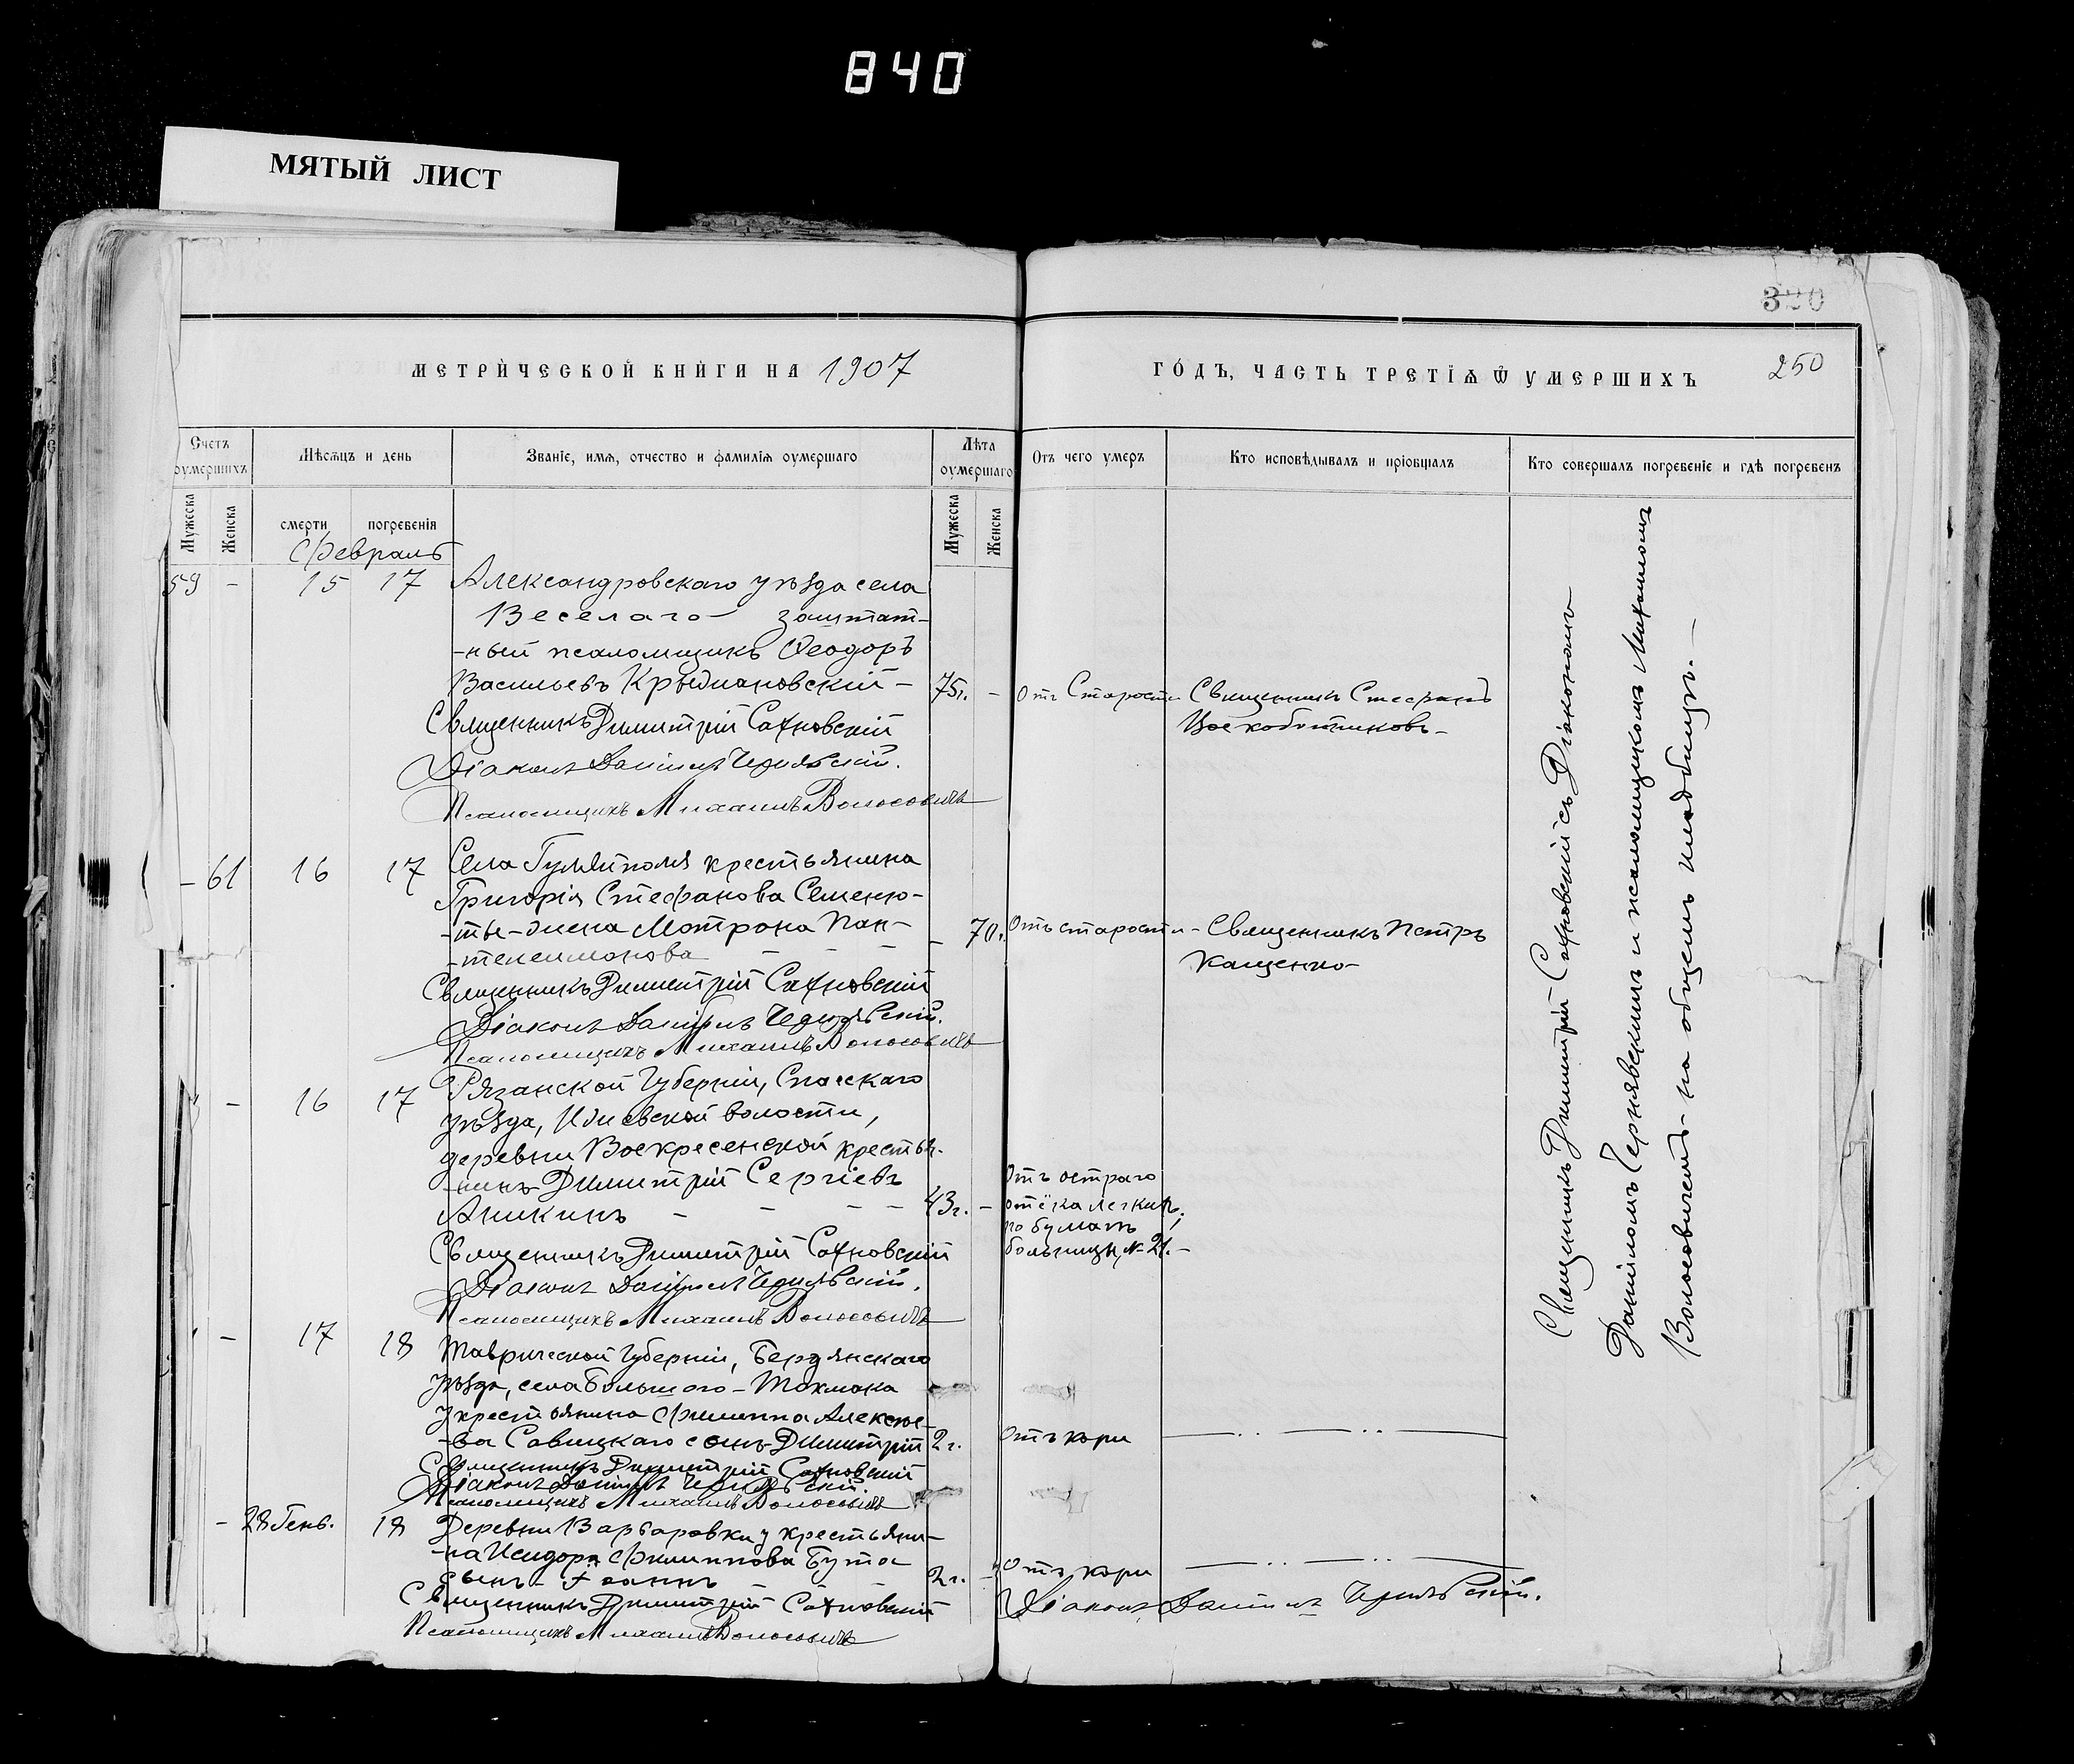 840
МЯТЫЙ ЛИСТ
320
МЕТРИ́ЧЕСКОЙ КНИ́ГИ НА 1907
ГО́ДЪ, ЧАСТЬ ТРЕТІѦ Ѿ УМЕРШИХЪ 250
Счетъ оумершихъ
Мѣсѧцъ и день
Званіе, имѧ, отчество и фамиліѧ оумершаго
Лѣта оумершаго
Отъ чего умеръ
Кто исповѣдывалъ и пріобщалъ
Кто совершалъ погребеніе и гдѣ погребенъ
Мужеска
Женска
смерти
погребенія
Мужеска
Женска
Февраль
59 - 15 17 Александровскаго уѣзда села
Веселаго заштат-
-ный псаломщикъ Ѳеодоръ
Васильевъ Крыжановскій - 75г. - Отъ Старости Священникъ Стефанъ
Воскобойниковъ-
Священникъ Димитрій Сахновскій
Діаконъ Даніилъ Чернявскій.
Псаломщикъ Михаилъ Волосовичъ
- 61 16 17 Села Гуляйполя крестьянина
Григорія Стефанова Семеню-
-ты-жена Мотрона Пан-
-телеимонова - 70. Отъ старости - Священникъ Петръ
Кащенко-
Священникъ Димитрій Сахновскій
Діаконъ Даніилъ Чернявскій.
Псаломщикъ Михаилъ Волосовичъ
- 16 17 Рязанской Губерніи, Спасскаго
уѣзда, Ижевской волости,
деревни Воскресенской крестья-
-нинъ Димитрій Сергіевъ
Аникинъ - - - - 43г. - Отъ остраго
отёка легкихъ;
по бумагѣ
больницы, № 21.-
Священникъ Димитрій Сахновскій
Діаконъ Даніилъ Чернявскій.
Псаломщикъ Михаилъ Волосовичъ
- 17 18 Таврической Губерніи, Бердянскаго
уѣзда, села Большого-Токмака
у крестьянина Филиппа Алексѣе-
-ва Савицкаго сынъ-Димитрій 2г. Отъ кори
Священникъ Димитрій Сахновскій
Діаконъ Даніилъ Чернявскій.
Псаломщикъ Михаилъ Волосовичъ
- 28 Генв. 18 Деревни Варваровки у крестьяни-
-на Исидора Филиппова Бута
сынъ - Іоаннъ 2г. - Отъ кори
Священникъ Димитрій Сахновскій
Діаконъ Даніилъ Чернявскій.
Псаломщикъ Михаилъ Волосовичъ
Священникъ Димитрій Сахновскій съ Діакономъ
Даніиломъ Чернявскимъ и псаломщикомъ Михаиломъ
Волосовичемъ - на общемъ кладбищѣ.-